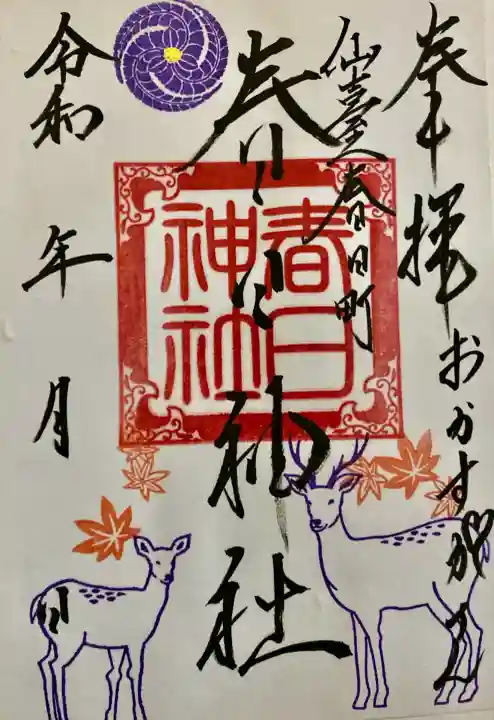 奉拝 おかすがさん
仙臺春日町
春日神社
春日
神社
令和 年 月 日